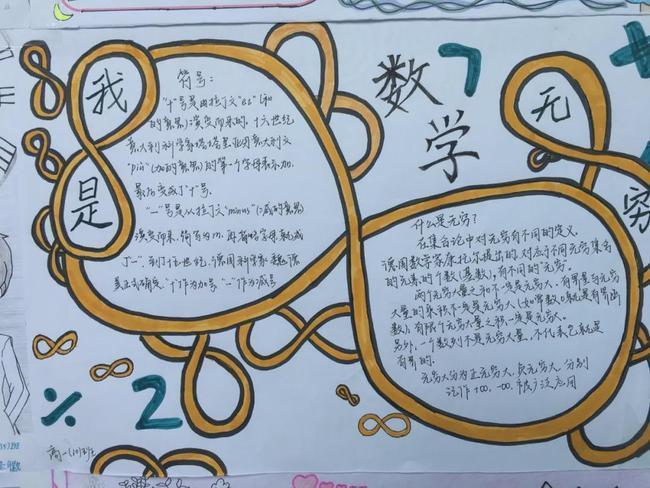 我
是
数
学
7
无
穷
符号：
"十"号是由拉丁文"et"（和
的意思）演变而来的，十六世纪
意大利科学家塔塔里亚用意大利文
"più"（加的意思）的第一个字母表示加，
最后变成了"十"号。
"一"号是从拉丁文"minus"（减的意思）
演变而来，简写为m，再省略字母就成
了"一"，到了十五世纪，德国科学家魏德
美正式确定"十"作为加号，"一"作为减号
什么是无穷？
在集合论中对无穷有不同的定义
德国数学家康托尔提出的，对应于不同无穷集合
的元素的个数（基数），有不同的"无穷"。
两个无穷大量之和不一定是无穷大，有界量与无穷
大量的乘积不一定是无穷大（如常数0就是有界函
数），有限个无穷大量之积一定是无穷大。
另外，一个数列不是无穷大量，不代表它就是
有界的。
无穷大分为正无穷大，负无穷大，分别
记作+∞，-∞，
应用
÷
2
高一(10)班